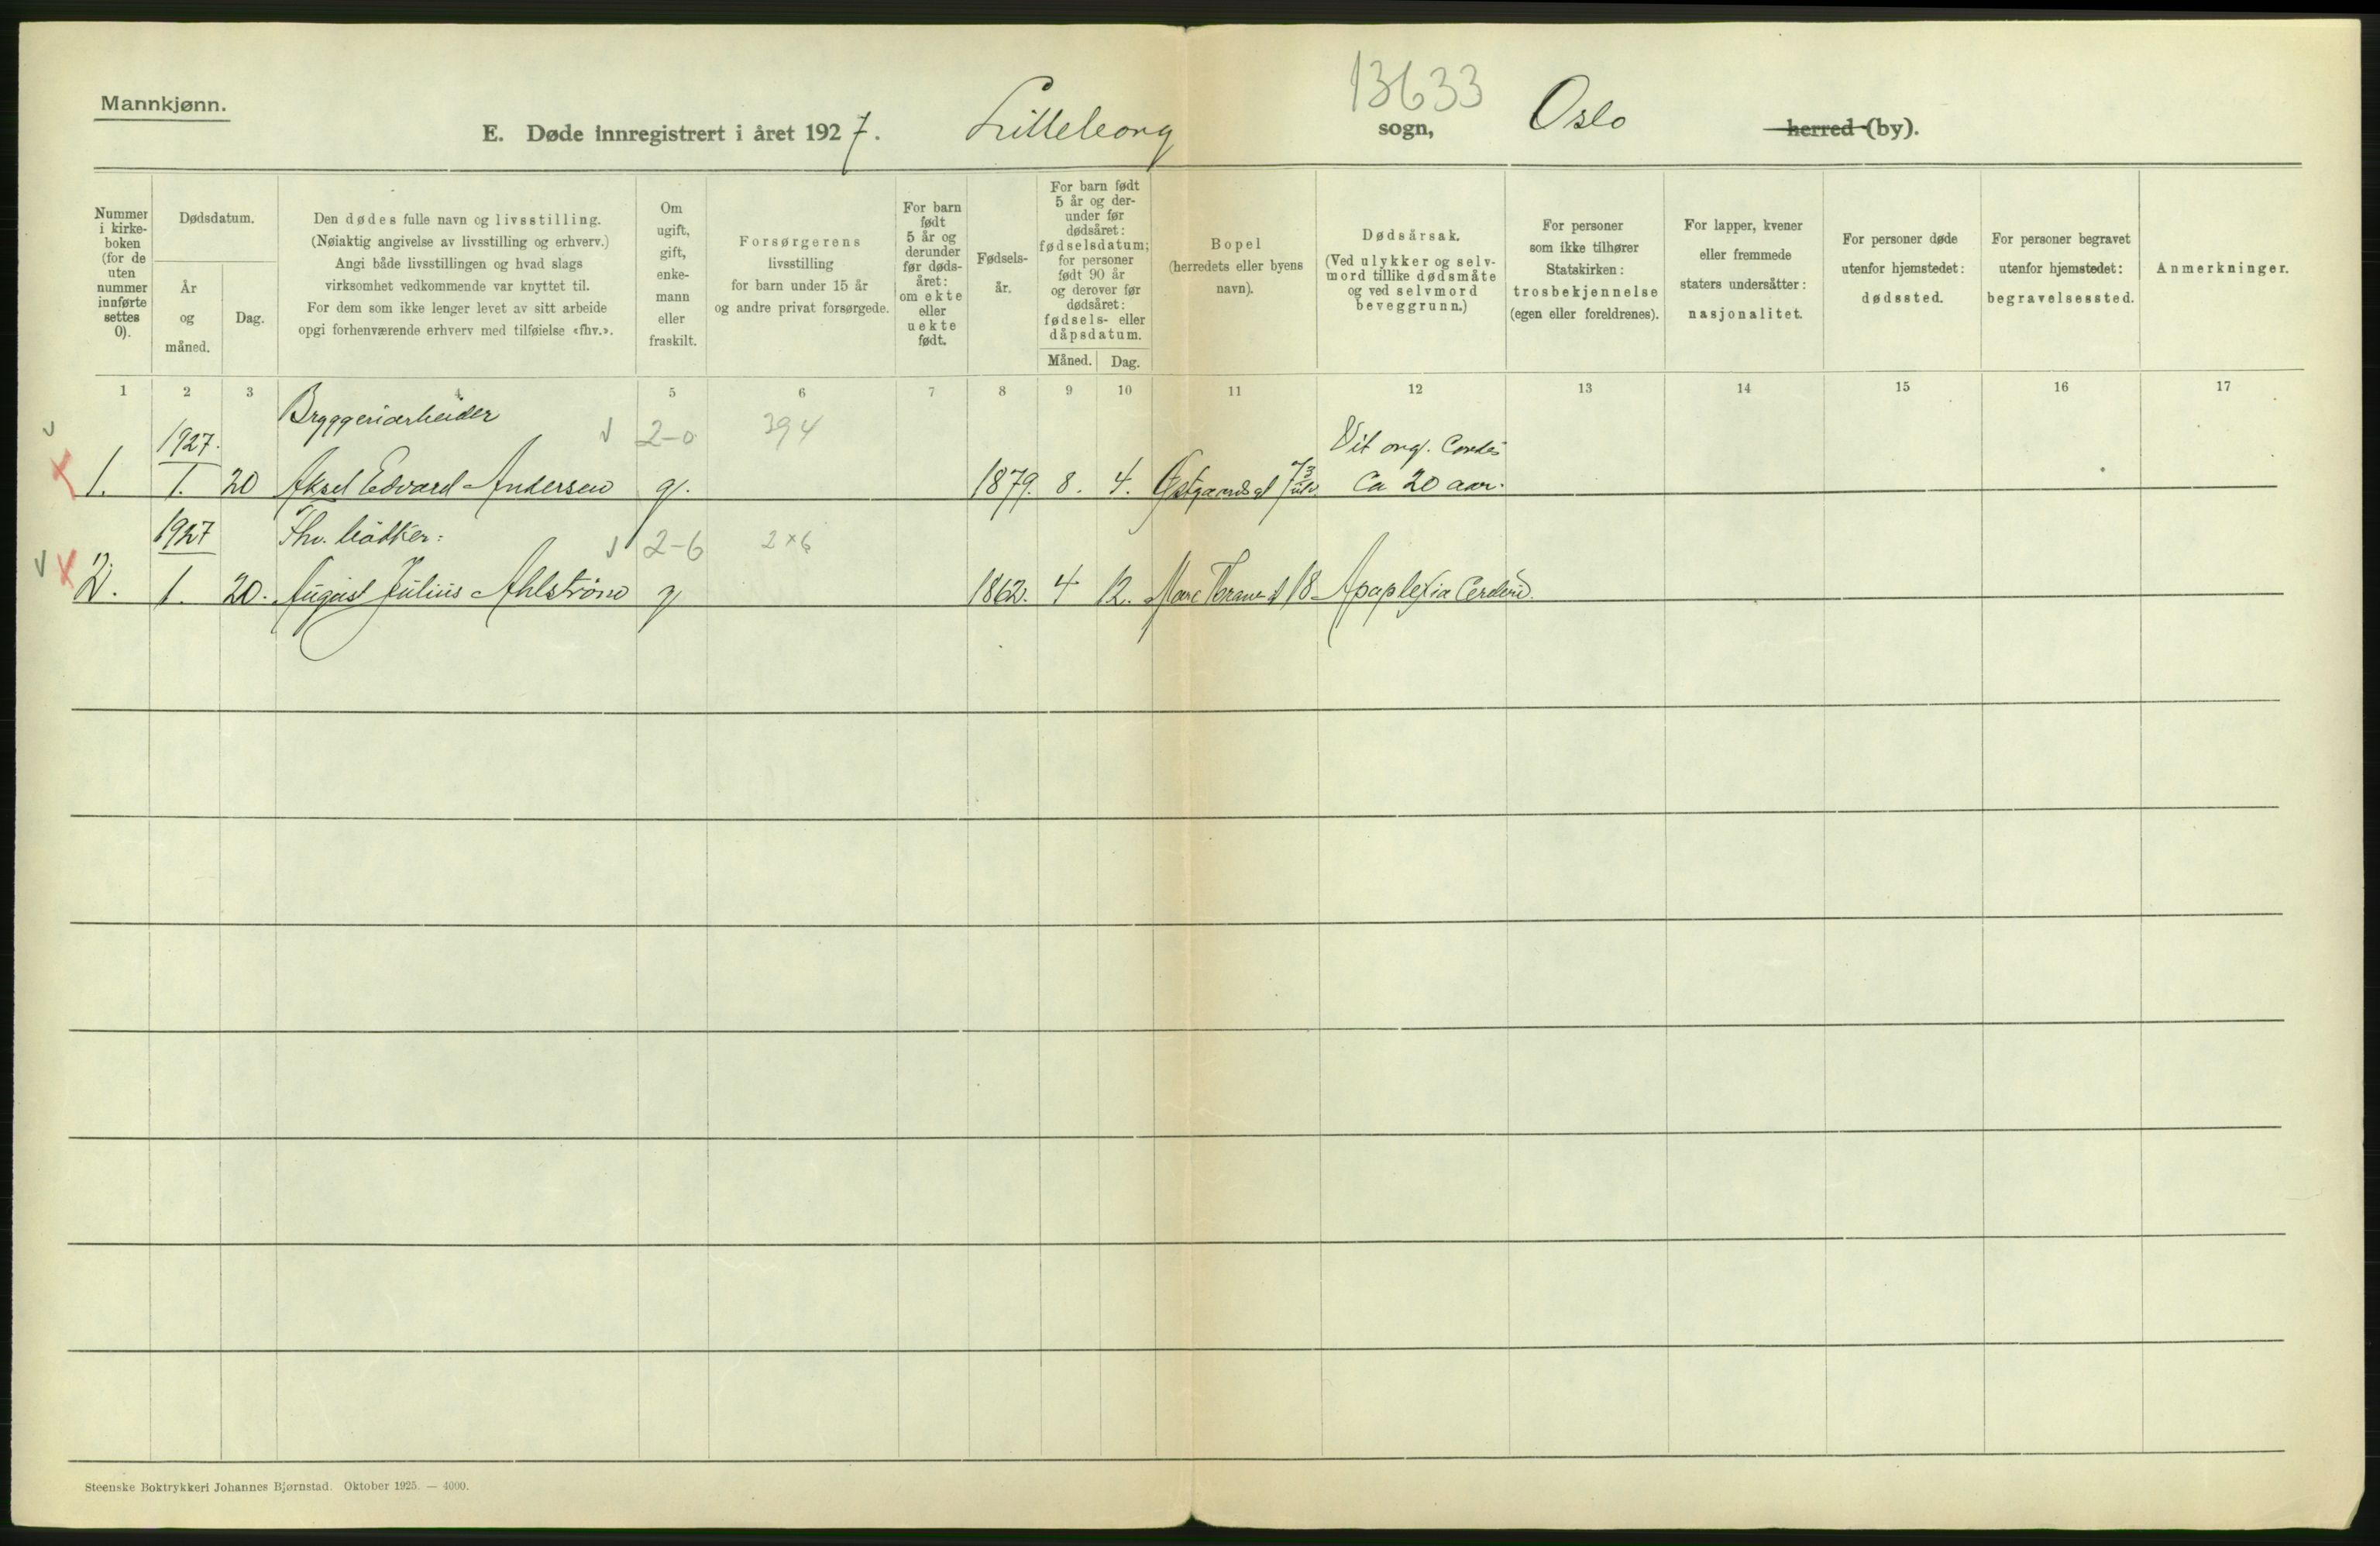 Mannkjønn.
13633
E. Døde innregistrert i året 1927. Lilleborg sogn, Oslo herred (by).
Nummer i kirke-boken (for de uten nummer innførte settes 0).
Dødsdatum.
År og måned.
Dag.
Den dødes fulle navn og livsstilling.
(Nøiaktig angivelse av livsstilling og erhverv.)
Angi både livsstillingen og hvad slags
virksomhet vedkommende var knyttet til.
For dem som ikke lenger levet av sitt arbeide
opgi forhenværende erhverv med tilføielse «fhv.».
Om ugift, gift, enke-mann eller fraskilt.
Forsørgerens
livsstilling
for barn under 15 år
og andre privat forsørgede.
For barn født 5 år og derunder før døds-året: om ekte eller uekte født.
Fødsels-år.
For barn født 5 år og der-under før dødsåret: fødselsdatum; for personer født 90 år og derover før dødsåret: fødsels- eller dåpsdatum.
Måned. Dag.
Bopel
(herredets eller byens
navn).
Dødsårsak.
(Ved ulykker og selv-
mord tillike dødsmåte
og ved selvmord
beveggrunn.)
For personer
som ikke tilhører
Statskirken:
trosbekjennelse
(egen eller foreldrenes).
For lapper, kvener
eller fremmede
staters undersåtter:
nasjonalitet.
For personer døde
utenfor hjemstedet:
dødssted.
For personer begravet
utenfor hjemstedet:
begravelsessted.
Anmerkninger.
1 2 3 4 5 6 7 8 9 10 11 12 13 14 15 16 17
1927. Bryggeriarbeider 2-0 394 Vit org. Cordis
1. 1. 20 Aksel Edvard Andersen g. 1879. 8. 4. Østgaardsgt Ca 20 aar.
1927 Fhv. bödker: 2-6 2x6
2. 1. 20. August Julius Ahlstrøm g 1862. 4 12. Marc Thranes 18 Apoplexia
Steenske Boktrykkeri Johannes Bjørnstad. Oktober 1925. — 4000.